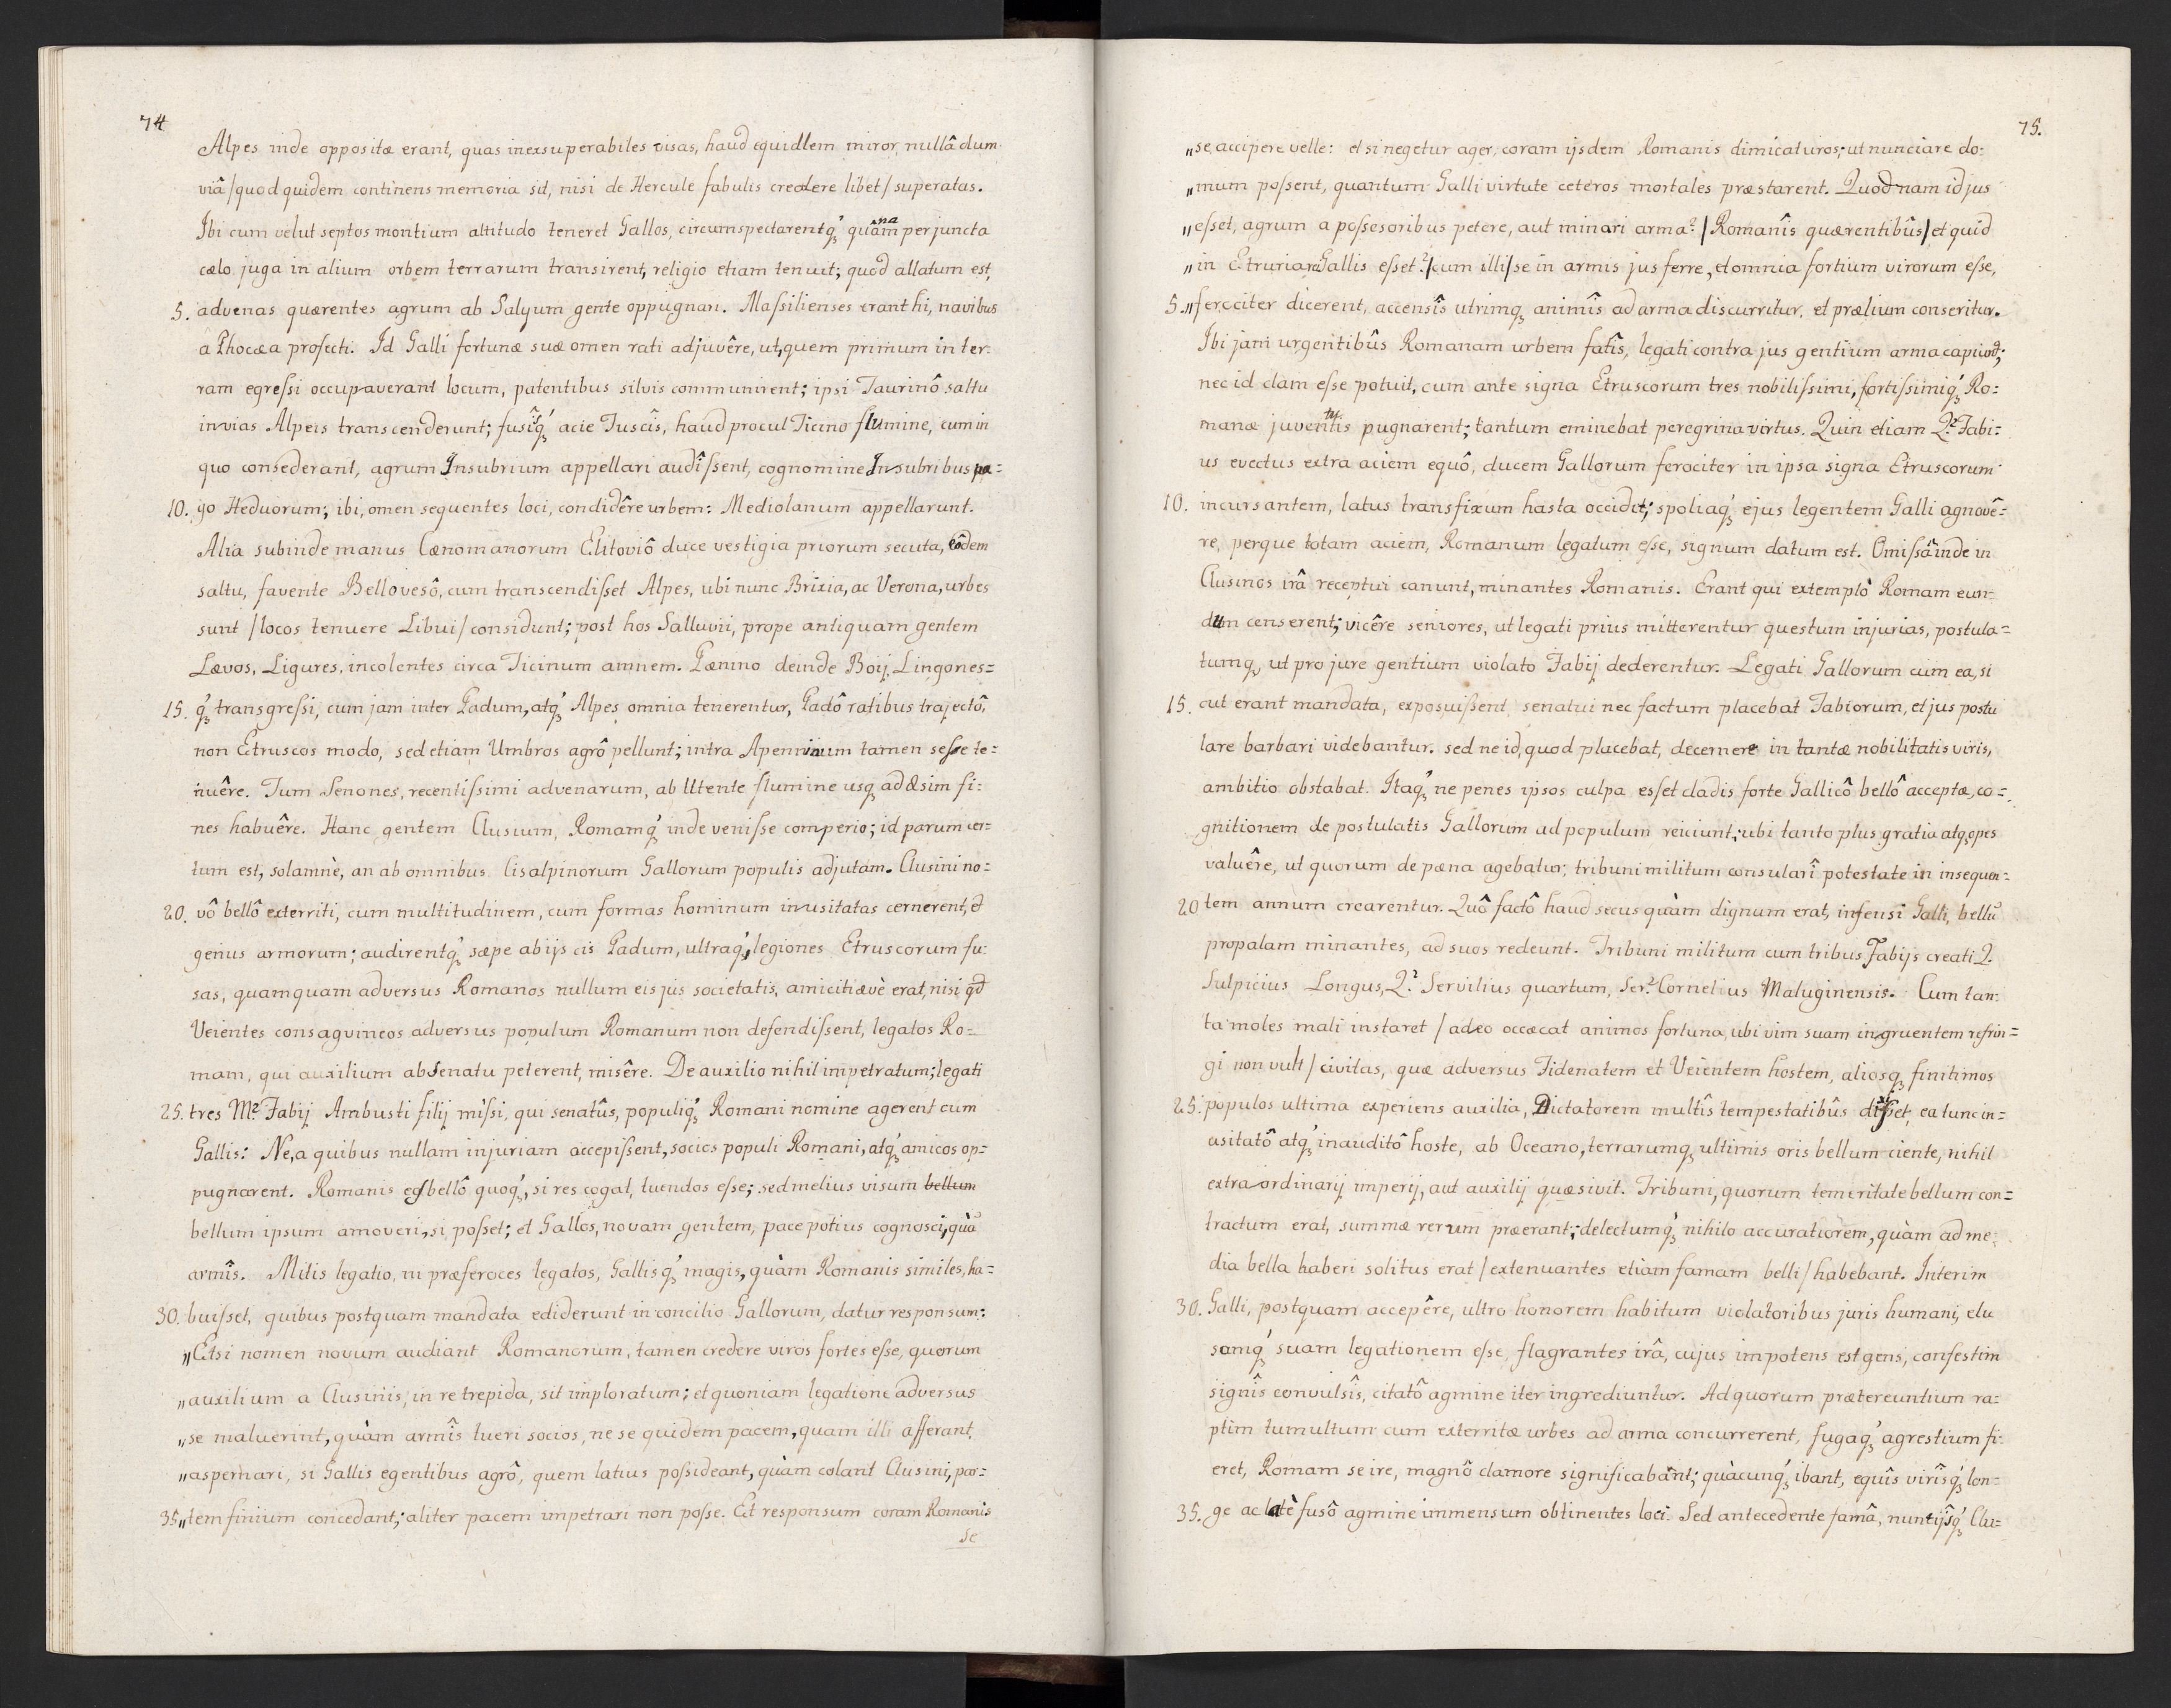 74
Alpes inde oppositæ erant, quas inexsuperabiles visas, haud equidem miror, nullâ dum
viâ /quod quidem continens memoria sit, nisi de Hercule fabulis credere libet/ superatas.
Ibi cum velut septos montium altitudo teneret Gallos, circumspectarentq́ꝫ quânam per juncta
cælo juga in alium orbem terrarum transirent, religio etiam tenuit; quod allatum est,
5. advenas quærentes agrum ab Salyum gente oppugnari. Maſsilienses erant hi, navibus
â Phocæa profecti. Id Galli fortunæ suæ omen rati adjuvêre, ut, quem primum in ter:
ram egreſsi occupaverant locum, patentibus silvis communirent; ipsi Taurinô saltu
invias Alpeis transcenderunt; fusîsq́ꝫ acie Tuscîs, haud procul Ticino flumine, cum in
quo consederant, agrum Insubrium appellari audîſsent, cognomine Insubribus pa=
10. go Heduorum; ibi, omen sequentes loci, condidêre urbem: Mediolanum appellarunt.
Alia subinde manus Cænomanorum Elitoviô duce vestigia priorum secuta, eôdem
saltu, favente Bellovesô, cum transcendiſset Alpes, ubi nunc Brixia, ac Verona, urbes
sunt /locos tenuere Libui/ considunt; post hos Salluvii, prope antiquam gentem
Lævos, Ligures, incolentes circa Ticinum amnem. Pænino deinde Boij, Lingones=
15. q́ꝫ transgreſsi, cum jam inter Padum, atq́ꝫ Alpes omnia tenerentur, Padô ratibus trajectô,
non Etruscos modo, sed etiam Umbros agrô pellunt; intra Apenninum tamen seſe te=
nuêre. Tum Senones, recentiſsimi advenarum, ab Utente flumine usqꝫ ad Æsim fi:
nes habuêre. Hanc gentem Clusium, Romamq́ꝫ inde veniſse comperio; id parum cer:
tum est, solamnè, an ab omnibus Cisalpinorum Gallorum populis adjutam. Clusini no=
20. vô bellô exterriti, cum multitudinem, cum formas hominum invisitatas cernerent, et
genus armorum; audirentq́ꝫ sæpe ab ijs cis Padum, ultraq́ꝫ, legiones Etruscorum fu:
sas, quamquam adversus Romanos nullum eis jus societatis, amicitiævè erat, nisi qd
Veientes consagvineos adversus populum Romanum non defendiſsent, legatos Ro=
mam, qui auxilium ab Senatu peterent, misêre. De auxilio nihil impetratum; legati
25. tres M? Fabij Ambusti filij miſsi, qui senatûs, populiq́ꝫ Romani nomine agerent cum
Gallis: Ne, a quibus nullam injuriam accepiſsent, socios populi Romani, atq́ꝫ amicos op=
pugnarent. Romanis eos bellô quoq́ꝫ, si res cogat, tuendos eſse; sed melius visum bellum
bellum ipsum amoveri, si poſset; et Gallos, novam gentem, pace potius cognosci, quà
armîs. Mitis legatio, ni præferoces legatos, Gallisq́ꝫ magis, quàm Romanis similes, ha=
30. buiſset, quibus postquam mandata ediderunt in concilio Gallorum, datur responsum:
„Etsi nomen novum audiant Romanorum, tamen credere viros fortes eſse, quorum
„auxilium a Clusinis, in re trepida, sit imploratum; et quoniam legatione adversus
„se maluerint, quàm armîs tueri socios, ne se quidem pacem, quam illi afferant,
„aspernari, si Gallis egentibus agrô, quem latius poſsideant, quàm colant Clusini, par=
35. „tem finium concedant; aliter pacem impetrari non poſse. Et responsum coram Romanis
se
75.
„se accipere velle: et si negetur ager, coram ijsdem Romanis dimicaturos; ut nunciare do:
„mum poſsent, quantum Galli virtute ceteros mortales præstarent. Quodnam id jus
„eſset, agrum a poſsesoribus petere, aut minari arma? /Romanîs quærentibûs/ et quid
„in Etruria Gallis eſset? /cum illi/ se in armis jus ferre, et omnia fortium virorum eſse,
5. „ferociter dicerent, accensîs utrimqꝫ animîs ad arma discurritur, et prælium conseritur.
Ibi jam urgentibûs Romanam urbem fatîs, legati contra jus gentium arma capiunt;
nec id clam eſse potuit, cum ante signa Etruscorum tres nobiliſsimi, fortiſsimiq́ꝫ Ro=
manæ juventutis pugnarent; tantum eminebat peregrina virtus. Quin etiam Q? Fabi=
us evectus extra aciem equô, ducem Gallorum ferociter in ipsa signa Etruscorum
10. incursantem, latus transfixum hasta occidit; spoliaq́ꝫ ejus legentem Galli agnovê=
re, perque totam aciem, Romanum legatum eſse, signum datum est. Omiſsâ inde in
Clusinos irâ receptui canunt, minantes Romanis. Erant qui extemplò Romam eun=
dum censerent; vicêre seniores, ut legati prius mitterentur questum injurias, postula=
tumqꝫ, ut pro jure gentium violato Fabij dederentur. Legati Gallorum cum ea, si
15. cut erant mandata, exposuiſsent senatui nec factum placebat Fabiorum, et jus postu
lare barbari videbantur. sed ne id, quod placebat, decernere in tantæ nobilitatis viris,
ambitio obstabat. Itaq́ꝫ ne penes ipsos culpa esſet cladis forte Gallicô bellô acceptæ, co=
gnitionem de postulatis Gallorum ad populum reiciunt; ubi tanto plus gratia atqꝫ opes
valuêre, ut quorum de pæna agebatur; tribuni militum consularî potestate in insequen=
20 tem annum crearentur. Quô factô haud secus quàm dignum erat, infensi Galli, bellũ
propalam minantes, ad suos redeunt. Tribuni militum cum tribus Fabijs creati Q.
Sulpicius Longus, Q? Servilius quartum, Ser? Cornelius Maluginensis. Cum tan:
ta moles mali instaret /adeo occæcat animos fortuna, ubi vim suam ingruentem refrin=
gi non vult/ civitas, quæ adversus Fidenatem et Veientem hostem, aliosqꝫ finitimos
25. populos ultima experiens auxilia, Dictatorem multîs tempestatibûs dixiſset, ea tunc in=
usitatô atq́ꝫ inauditô hoste, ab Oceano, terrarumqꝫ ultimis oris bellum ciente, nihil
extraordinarij imperij, aut auxilij quæsivit. Tribuni, quorum temeritate bellum con=
tractum erat, summæ rerum præerant; delectumq́ꝫ nihilo accuratiorem, quàm ad me:
dia bella haberi solitus erat /extenuantes etiam famam belli/ habebant. Interim
30. Galli, postquam accepêre, ultro honorem habitum violatoribus juris humani, elu
samq́ꝫ suam legationem eſse, flagrantes irâ, cujus impotens est gens, confestim
signîs convulsîs, citatô agmine iter ingrediuntur. Ad quorum prætereuntium ra:
ptim tumultum cum exterritæ urbes ad arma concurrerent, fugaq́ꝫ agrestium fi:
eret, Romam se ire, magnô clamore significabant; quàcunq́ꝫ ibant, equîs virîsq́ꝫ lon=
35. ge ac latè fusô agmine immensum obtinentes loci. Sed antecedente famâ, nuntijsq́ꝫ Clu=